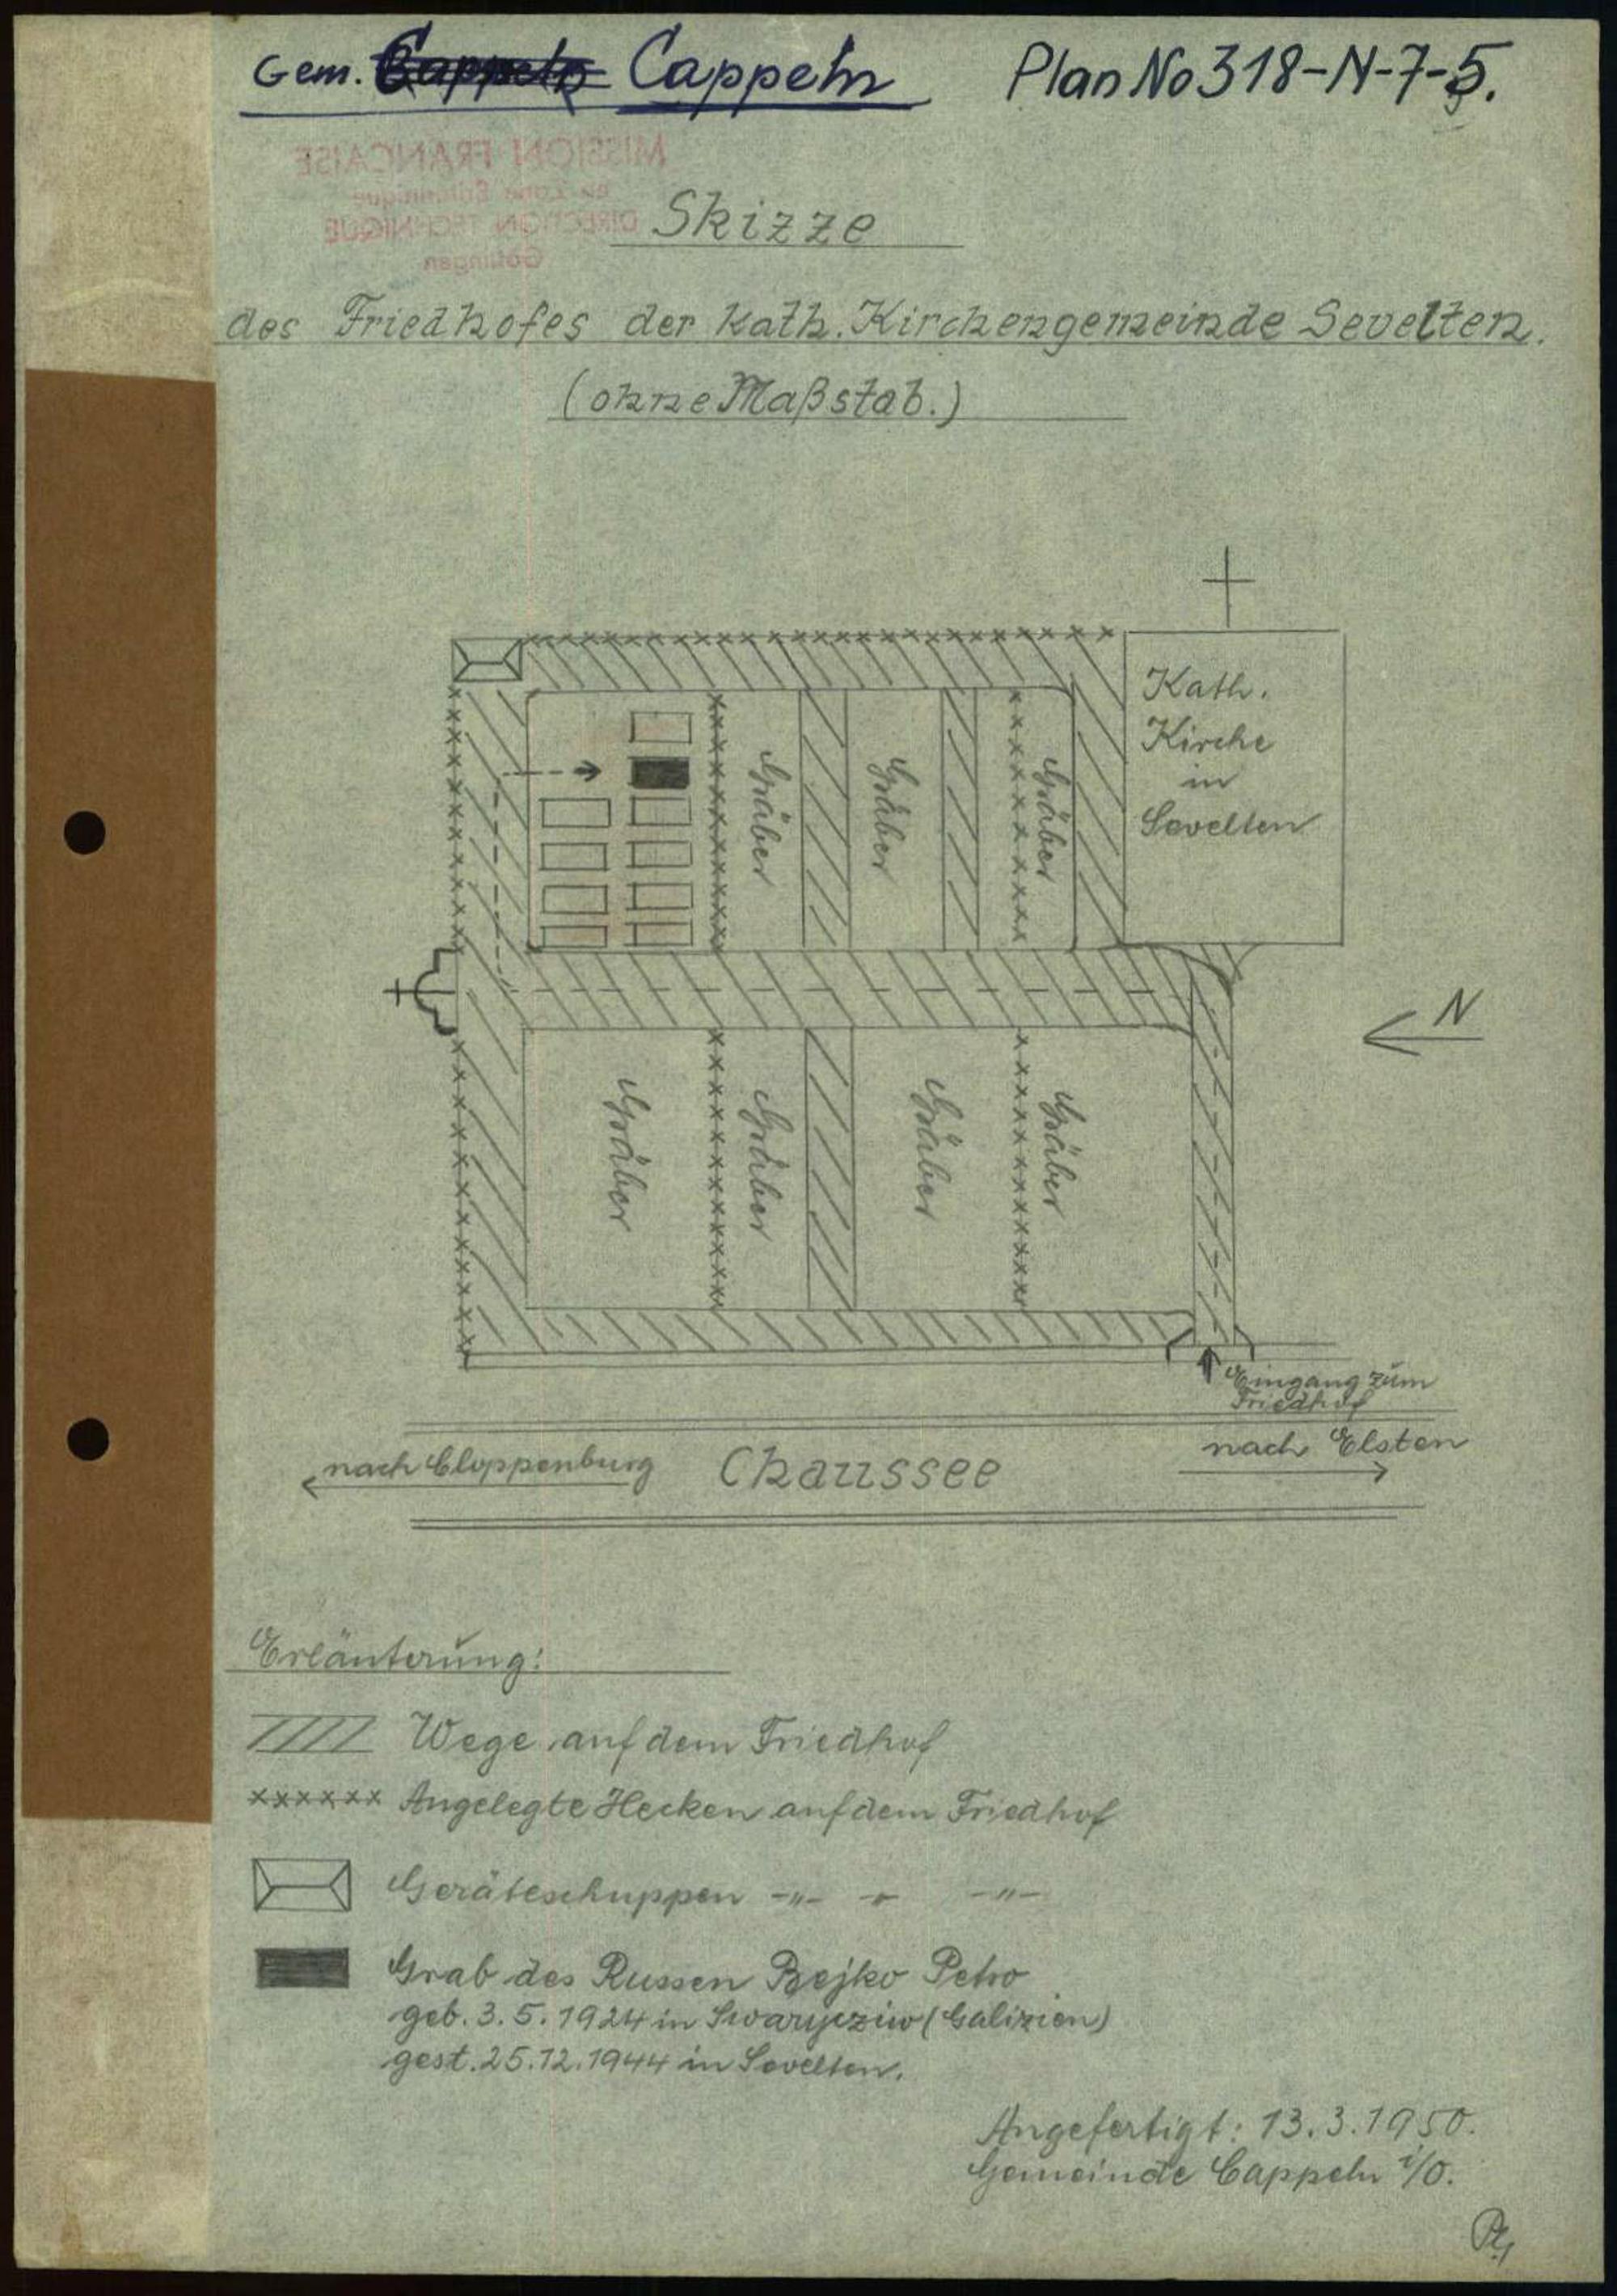 Gem. Cappeln Cappeln Plan No 318-N-7-5.
MISSION FRANCAISE
en Zone Britannique
DIRECTION TECHNIQUE
Göttingen
Skizze
des Friedhofes der kath. Kirchengemeinde Sevelten.
(ohne Maßstab.)
Kath.
Kirche
in
Sevelten
Gräber
Gräber
Gräber
N
Gräber
Gräber
Gräber
Gräber
Eingang zum
Friedhof
nach Cloppenburg Chaussee nach Elsten
Erläuterung:
Wege auf dem Friedhof
xxxxxx Angelegte Hecken auf dem Friedhof
Geräteschuppen -"- " -"-
Grab des Russen Bejko Petro
geb. 3.5.1924 in Swarycziw (Galizien)
gest. 25.12.1944 in Sevelten.
Angefertigt: 13.3.1950.
Gemeinde Cappeln i/O.